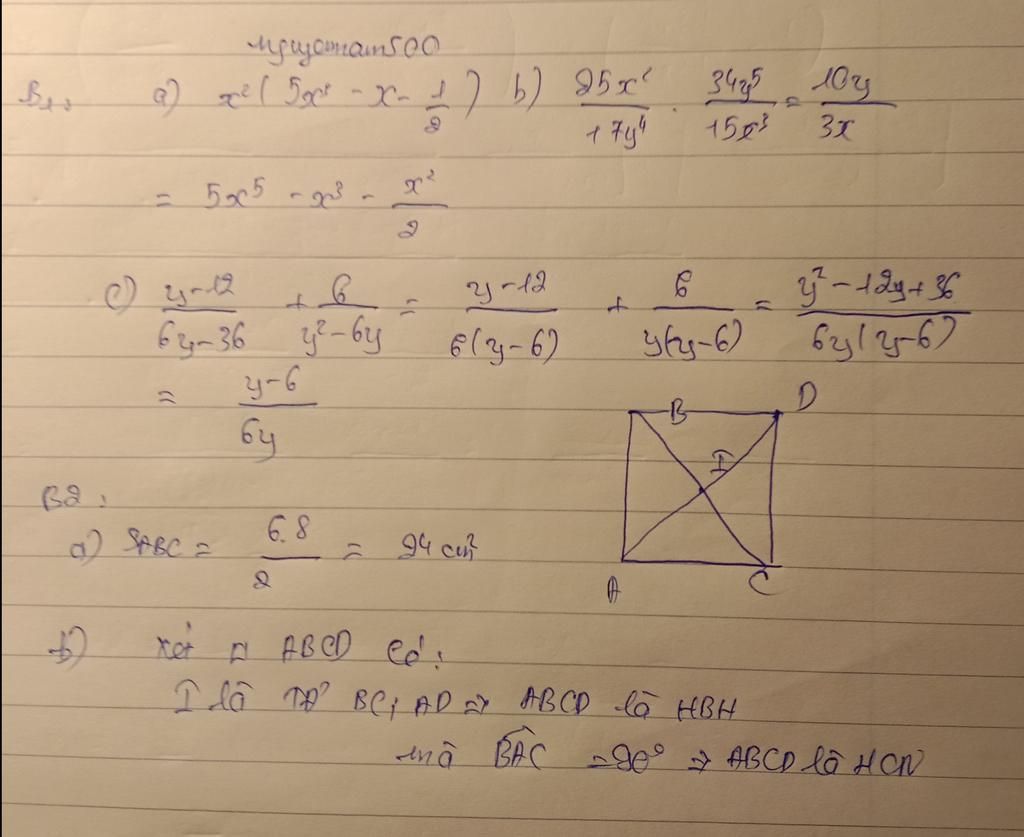 nguyentam500
B1: a) x²(5x³ - x - 1/2) b) 25x²/17y⁴ . 34y⁵/15x³ = 10y/3x
= 5x⁵ - x³ - x²/2
c) y-12/6y-36 + 6/y²-6y = y-12/6(y-6) + 6/y(y-6) = y²-12y+36/6y(y-6)
= y-6/6y
B D
I
B2:
a) SABC = 6.8/2 = 24 cm²
A C
b) Xét □ ABCD có:
I là TĐ BC, AD => ABCD là HBH
mà BAC = 90° => ABCD là HCN